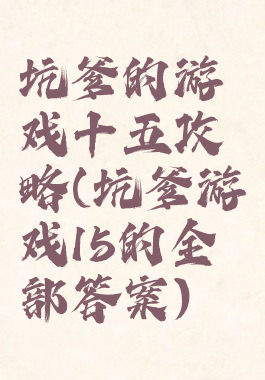 坑爹的游
戏十五攻
略(坑爹游
戏15的全
部答案)